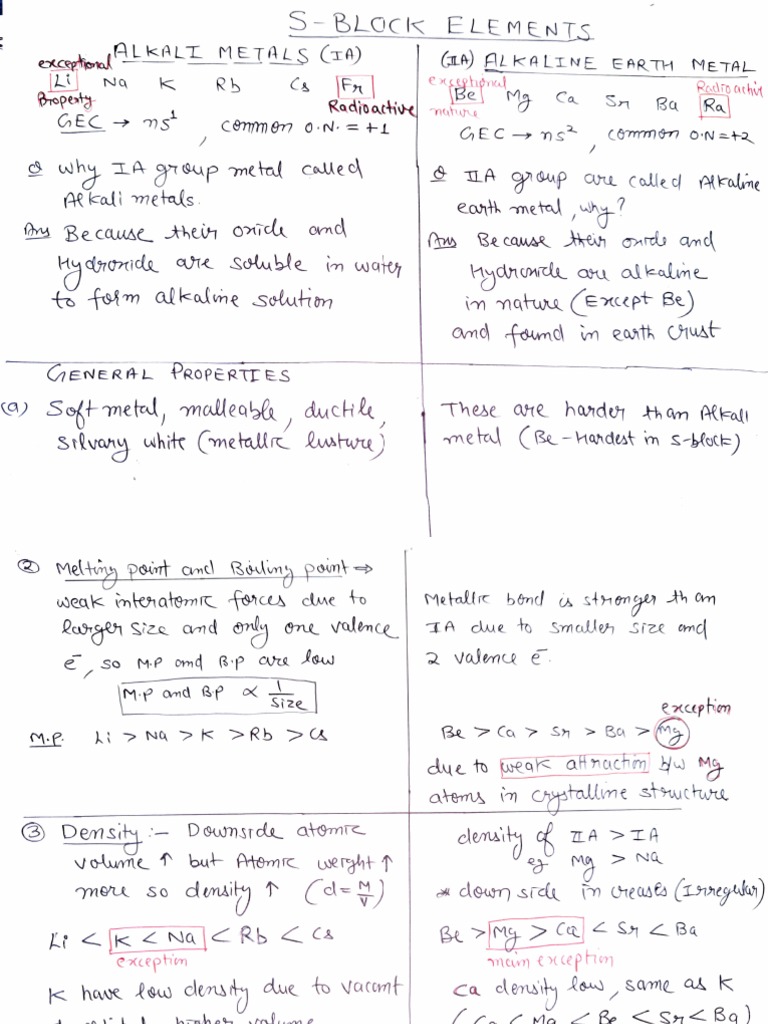 S-BLOCK ELEMENTS
ALKALI METALS (IA)
exceptional
Li Na K Rb Cs Fr
Property Radioactive
GEC → ns¹, common O.N. = +1
Q why IA group metal called
Alkali metals.
Ans Because their oxide and
Hydroxide are soluble in water
to form alkaline solution
(IIA) ALKALINE EARTH METAL
exceptional Radioactive
Be Mg Ca Sr Ba Ra
nature
GEC → ns², common O.N = +2
Q IIA group are called Alkaline
earth metal, why?
Ans Because their oxide and
Hydroxide are alkaline
in nature (Except Be)
and found in earth crust
GENERAL PROPERTIES
(a) Soft metal, malleable, ductile,
Silvary white (metallic lusture)
These are harder than Alkali
metal (Be-Hardest in S-block)
② Melting point and Boiling point ⇒
weak interatomic forces due to
larger size and only one valence
ē, so M.P and B.P are low
M.P and B.P ∝ 1/Size
M.P. Li > Na > K > Rb > Cs
Metallic bond is stronger than
IA due to smaller size and
2 valence ē.
exception
Be > Ca > Sr > Ba > Mg
due to weak attraction b/w Mg
atoms in crystalline structure
③ Density :- Downside atomic
volume ↑ but Atomic weight ↑
more so density ↑ (d = M/V)
Li < K < Na < Rb < Cs
exception
K have low density due to vacant
density of IIA > IA
eg Mg > Na
* down side increases (Irregular)
Be > Mg > Ca < Sr < Ba
main exception
Ca density low, same as K
(Ca < Mg < Be < Sr < Ba)